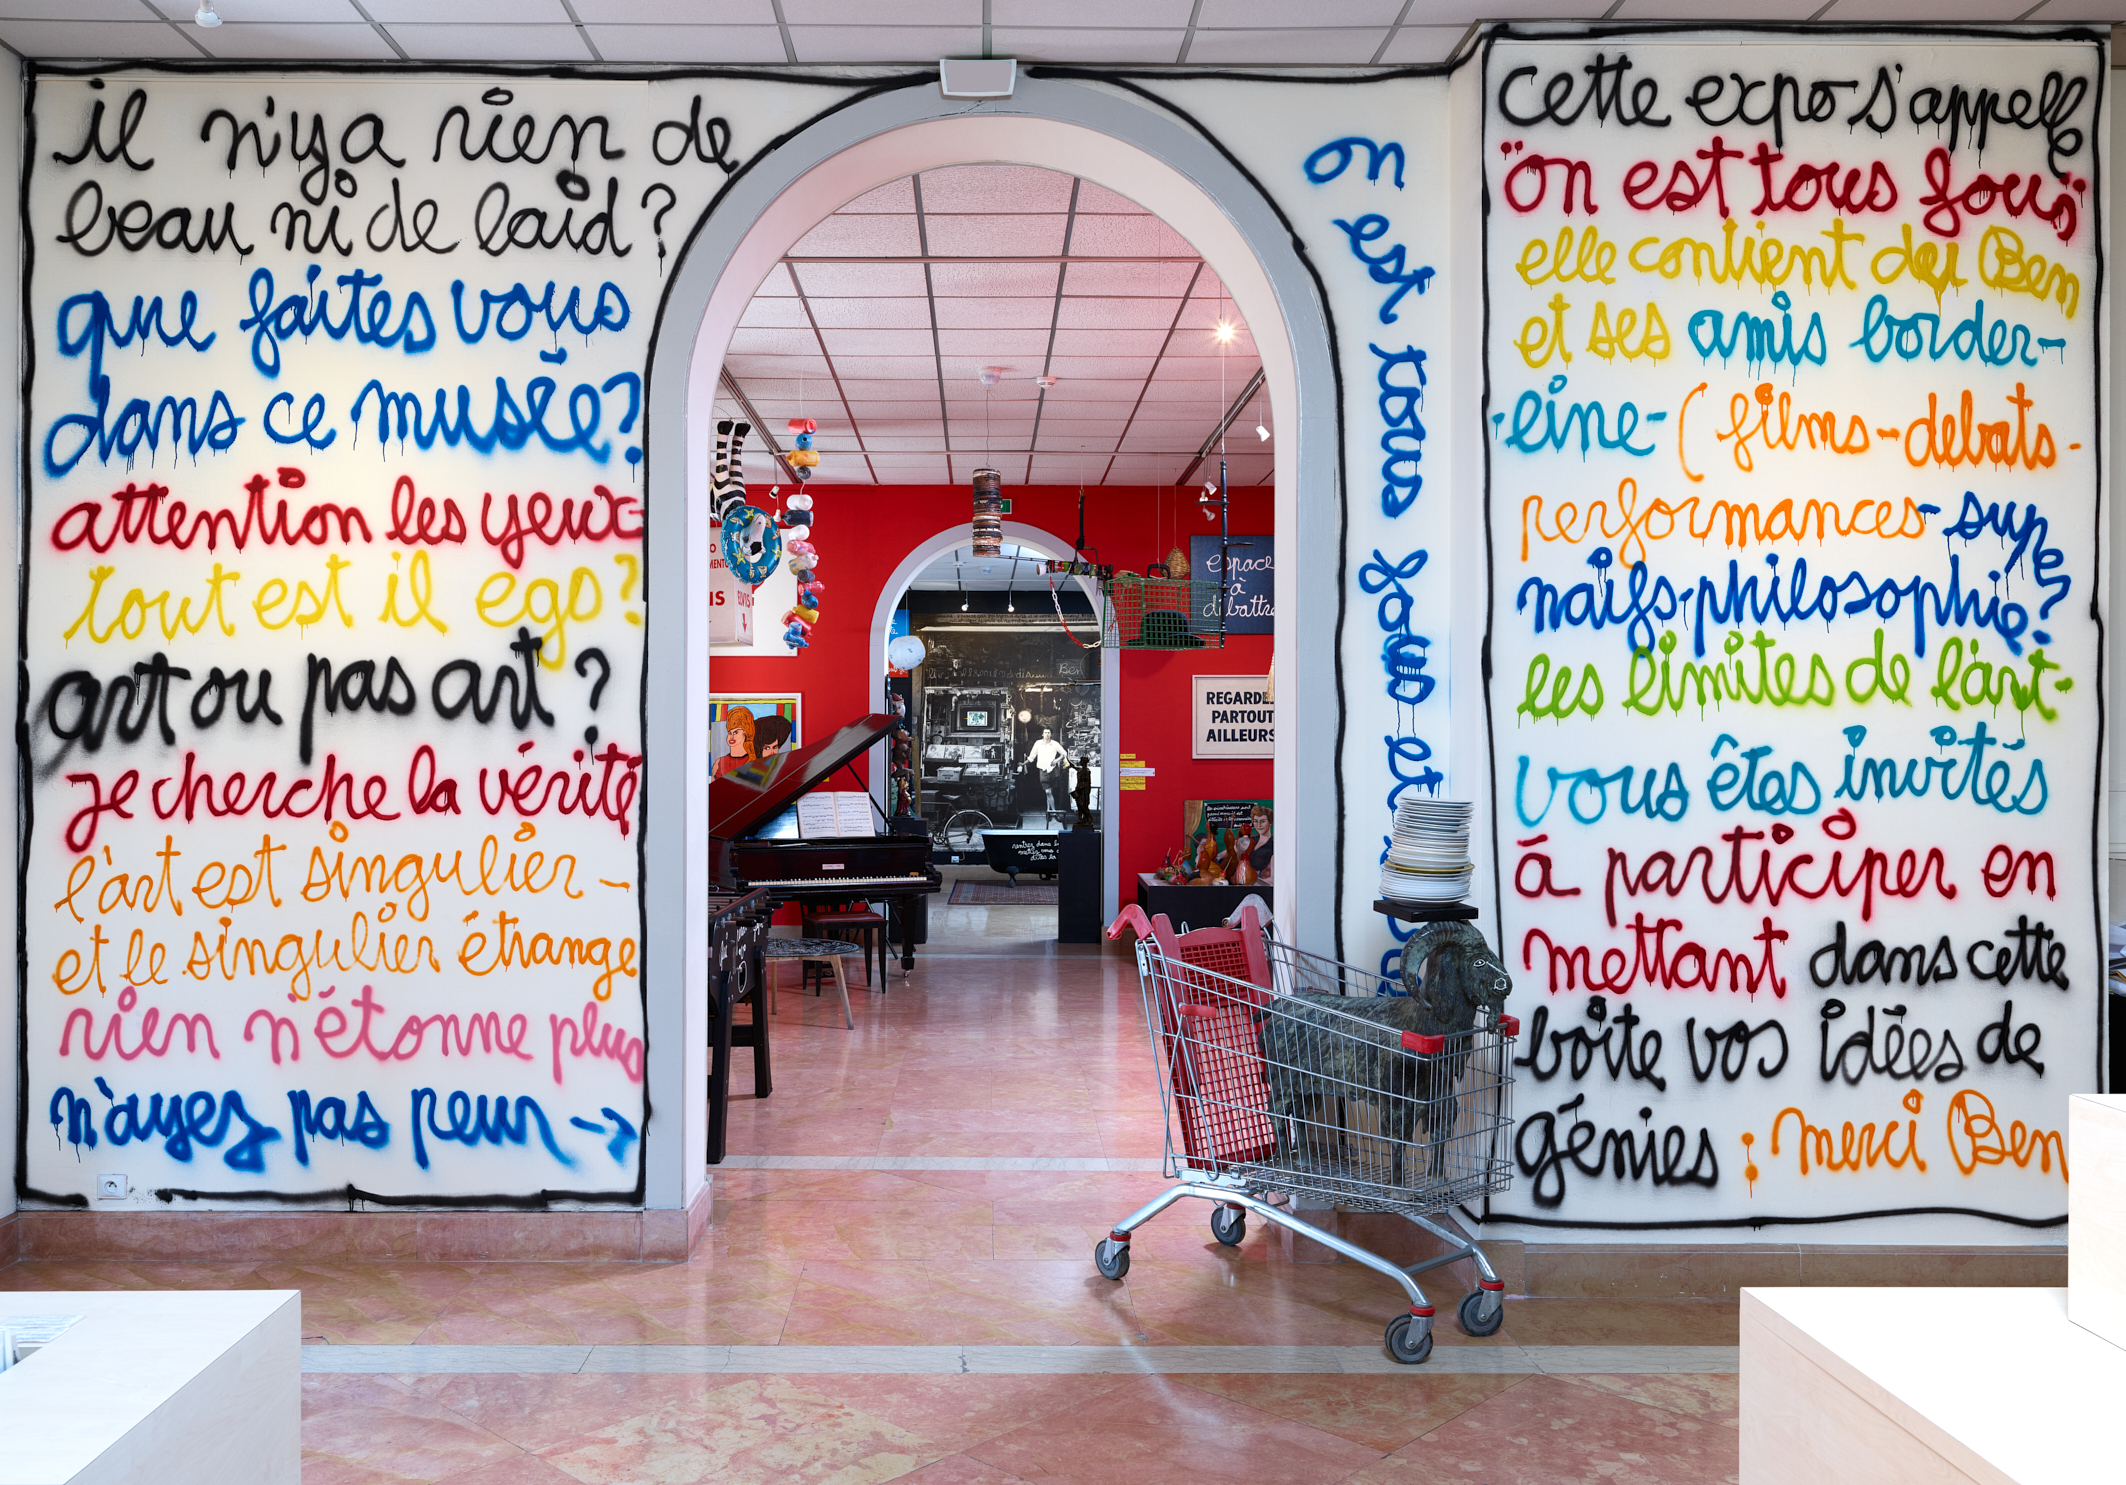 il n'y a rien de
beau ni de laid?
que faites vous
dans ce musée?
attention les yeux
tout est il ego?
art ou pas art?
je cherche la vérité
l'art est singulier -
et le singulier étrange
rien n'étonne plus
n'ayez pas peur →
on est tous fous et
cette expo s'appelle
"on est tous fous"
elle contient des Ben
et ses amis border-
-eine- (films-debats-
performances- supe
naifs-philosophie?
les limites de l'art-
vous êtes invités
á participer en
mettant dans cette
boîte vos idées de
génies : merci Ben
espace
à
débattre
REGARDEZ
PARTOUT
AILLEURS
Ben
IS